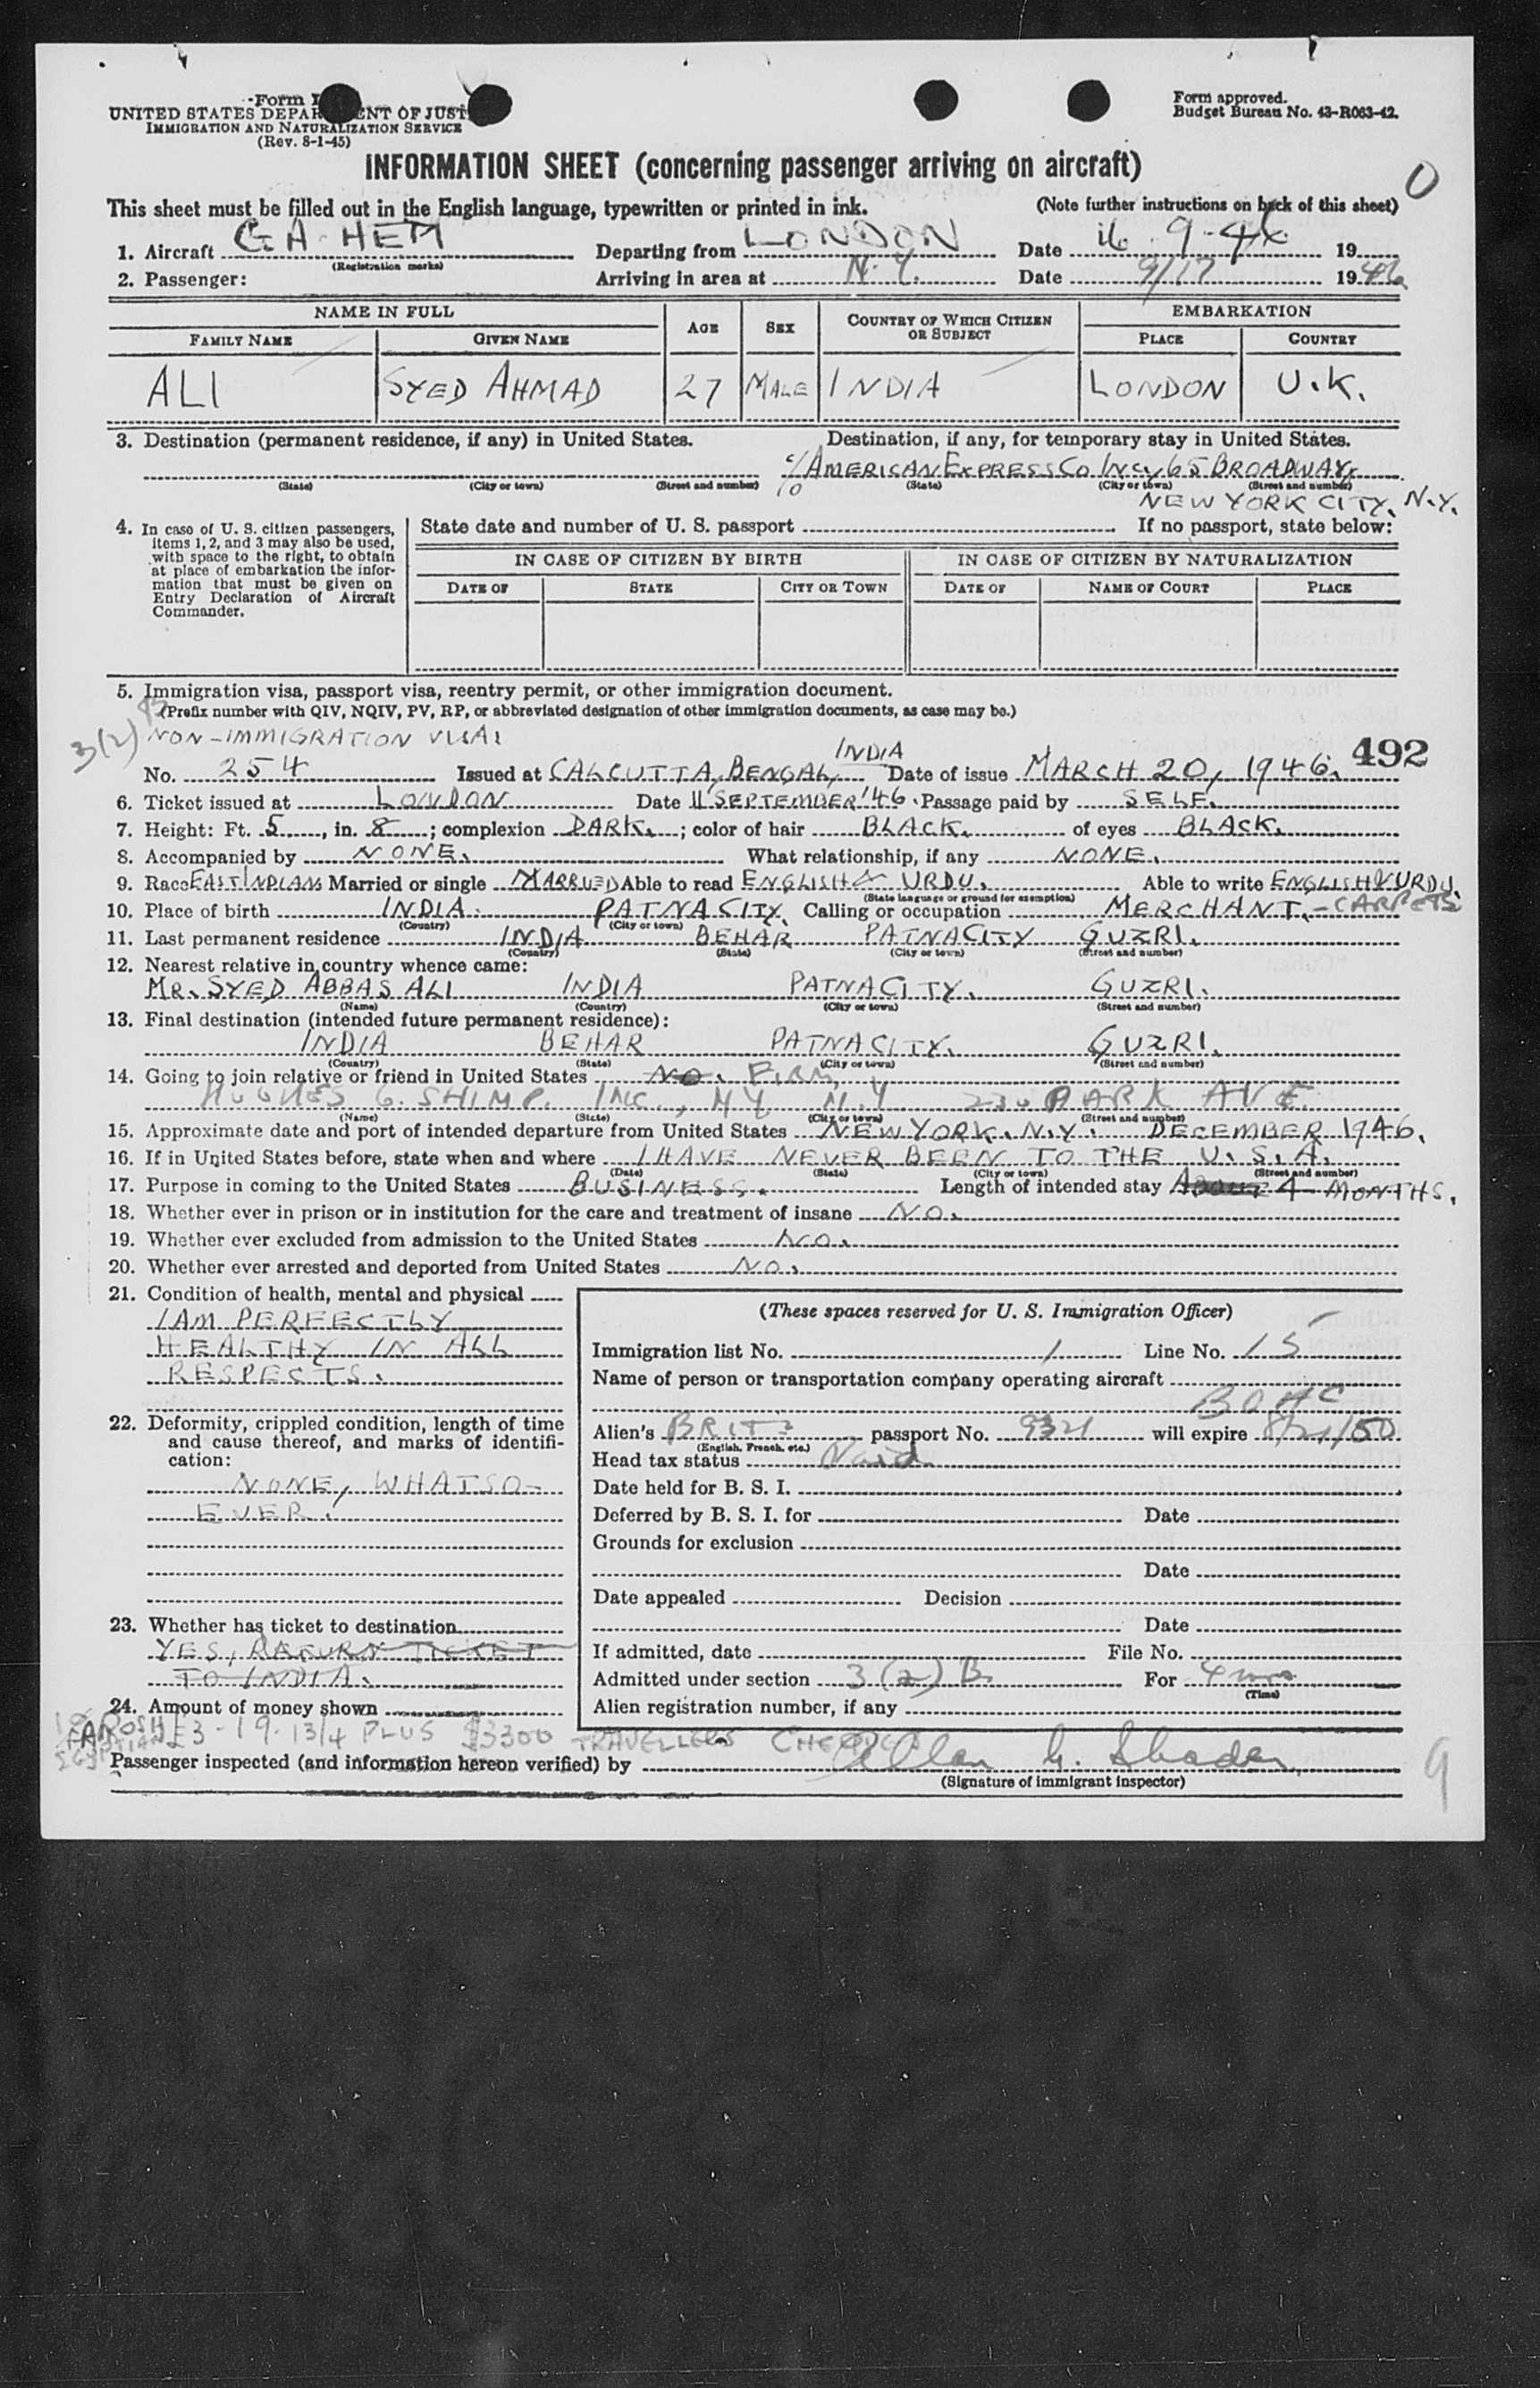 Form I
UNITED STATES DEPARTMENT OF JUSTICE
IMMIGRATION AND NATURALIZATION SERVICE
(Rev. 8-1-45)
Form approved.
Budget Bureau No. 43-R063-42.
INFORMATION SHEET (concerning passenger arriving on aircraft)
This sheet must be filled out in the English language, typewritten or printed in ink. (Note further instructions on back of this sheet)
1. Aircraft GA-HEM Departing from LONDON Date 16.9.46 19
(Registration marks)
2. Passenger: Arriving in area at N.Y. Date 9/17 1946
NAME IN FULL AGE SEX COUNTRY OF WHICH CITIZEN OR SUBJECT EMBARKATION
FAMILY NAME GIVEN NAME PLACE COUNTRY
ALI SYED AHMAD 27 MALE INDIA LONDON U.K.
3. Destination (permanent residence, if any) in United States. Destination, if any, for temporary stay in United States.
c/o AMERICAN EXPRESS Co INC., 65 BROADWAY,
(State) (City or town) (Street and number) (State) (City or town) (Street and number)
NEW YORK CITY, N.Y.
4. In case of U. S. citizen passengers, items 1, 2, and 3 may also be used, with space to the right, to obtain at place of embarkation the information that must be given on Entry Declaration of Aircraft Commander.
State date and number of U. S. passport If no passport, state below:
IN CASE OF CITIZEN BY BIRTH IN CASE OF CITIZEN BY NATURALIZATION
DATE OF STATE CITY OR TOWN DATE OF NAME OF COURT PLACE
5. Immigration visa, passport visa, reentry permit, or other immigration document.
(Prefix number with QIV, NQIV, PV, RP, or abbreviated designation of other immigration documents, as case may be.)
3(2) B NON-IMMIGRATION VISA:
492
No. 254 Issued at CALCUTTA, BENGAL, INDIA Date of issue MARCH 20, 1946.
6. Ticket issued at LONDON Date 11 SEPTEMBER '46. Passage paid by SELF.
7. Height: Ft. 5, in. 8; complexion DARK.; color of hair BLACK. of eyes BLACK.
8. Accompanied by NONE. What relationship, if any NONE.
9. Race EAST INDIAN Married or single MARRIED Able to read ENGLISH & URDU. Able to write ENGLISH & URDU.
(State language or ground for exemption)
10. Place of birth INDIA. PATNA CITY. Calling or occupation MERCHANT.-CARPETS
(Country) (City or town)
11. Last permanent residence INDIA BEHAR PATNA CITY GUZRI.
(Country) (State) (City or town) (Street and number)
12. Nearest relative in country whence came:
MR. SYED ABBAS ALI INDIA PATNA CITY. GUZRI.
(Name) (Country) (City or town) (Street and number)
13. Final destination (intended future permanent residence):
INDIA BEHAR PATNA CITY. GUZRI.
(Country) (State) (City or town) (Street and number)
14. Going to join relative or friend in United States NO. FIRM,
HUGHES G. SHIMP. INC., NY N.Y. 230 PARK AVE.
(Name) (State) (City or town) (Street and number)
15. Approximate date and port of intended departure from United States NEW YORK. N.Y. DECEMBER 1946.
16. If in United States before, state when and where I HAVE NEVER BEEN TO THE U.S.A.
(Date) (State) (City or town) (Street and number)
17. Purpose in coming to the United States BUSINESS. Length of intended stay ABOUT 4 MONTHS.
18. Whether ever in prison or in institution for the care and treatment of insane NO.
19. Whether ever excluded from admission to the United States NO.
20. Whether ever arrested and deported from United States NO.
21. Condition of health, mental and physical
I AM PERFECTLY
HEALTHY IN ALL
RESPECTS.
22. Deformity, crippled condition, length of time and cause thereof, and marks of identification:
NONE, WHATSO-
EVER.
23. Whether has ticket to destination
YES, RETURN TICKET
TO INDIA.
24. Amount of money shown
£3-19-13/4 PLUS $3300 TRAVELLERS CHEQUES
(These spaces reserved for U. S. Immigration Officer)
Immigration list No. 1 Line No. 15
Name of person or transportation company operating aircraft
BOAC
Alien's BRIT passport No. 9321 will expire 8/21/50
(English, French, etc.)
Head tax status Paid
Date held for B. S. I.
Deferred by B. S. I. for Date
Grounds for exclusion
Date
Date appealed Decision
Date
If admitted, date File No.
Admitted under section 3(2)B For 4 mos
(Time)
Alien registration number, if any
Passenger inspected (and information hereon verified) by
(Signature of immigrant inspector)
9